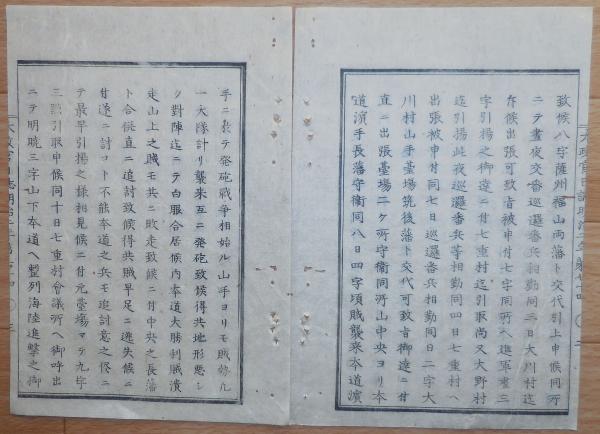 致候八字薩州福山両藩ト交代引上申候同所
ニテ晝夜交番巡邏番兵相勤同三日大川村迄
斥候出張可致旨被申付七字同所ヘ進軍晝三
字引揚之御達ニ付七重村迄引取尚又大野村
迄引揚此夜巡邏番兵等相勤同四日七重村ヘ
出張被申付同七日巡邏番兵相勤同日二字大
川村山手臺場筑後藩ト交代可致旨御達ニ付
直ニ出張臺場二ケ所守衛同所山中央ヨリ本
道濱手長藩守衛同八日四字頃賊襲来本道濱
手ニ於テ発砲戦争相始ル山手ヨリモ賊勢凡
一大隊計リ襲来互ニ発砲致候得共地形悪シ
ク對陣迄ニテ白眼合居候内本道大勝利賊潰
走山上之賊モ共ニ敗走致候ニ付中央之長藩
ト合併直ニ追討致候得共賊早足ニ逃失候ニ
付遂ニ討コト不能本道之兵モ追討意之侭ニ
テ最早引揚之様相見候ニ付元臺場マテ九字
三點引取申候同十日七重村會議所ヘ御呼出
ニテ明暁三字山下本道ヘ整列海陸進撃之御